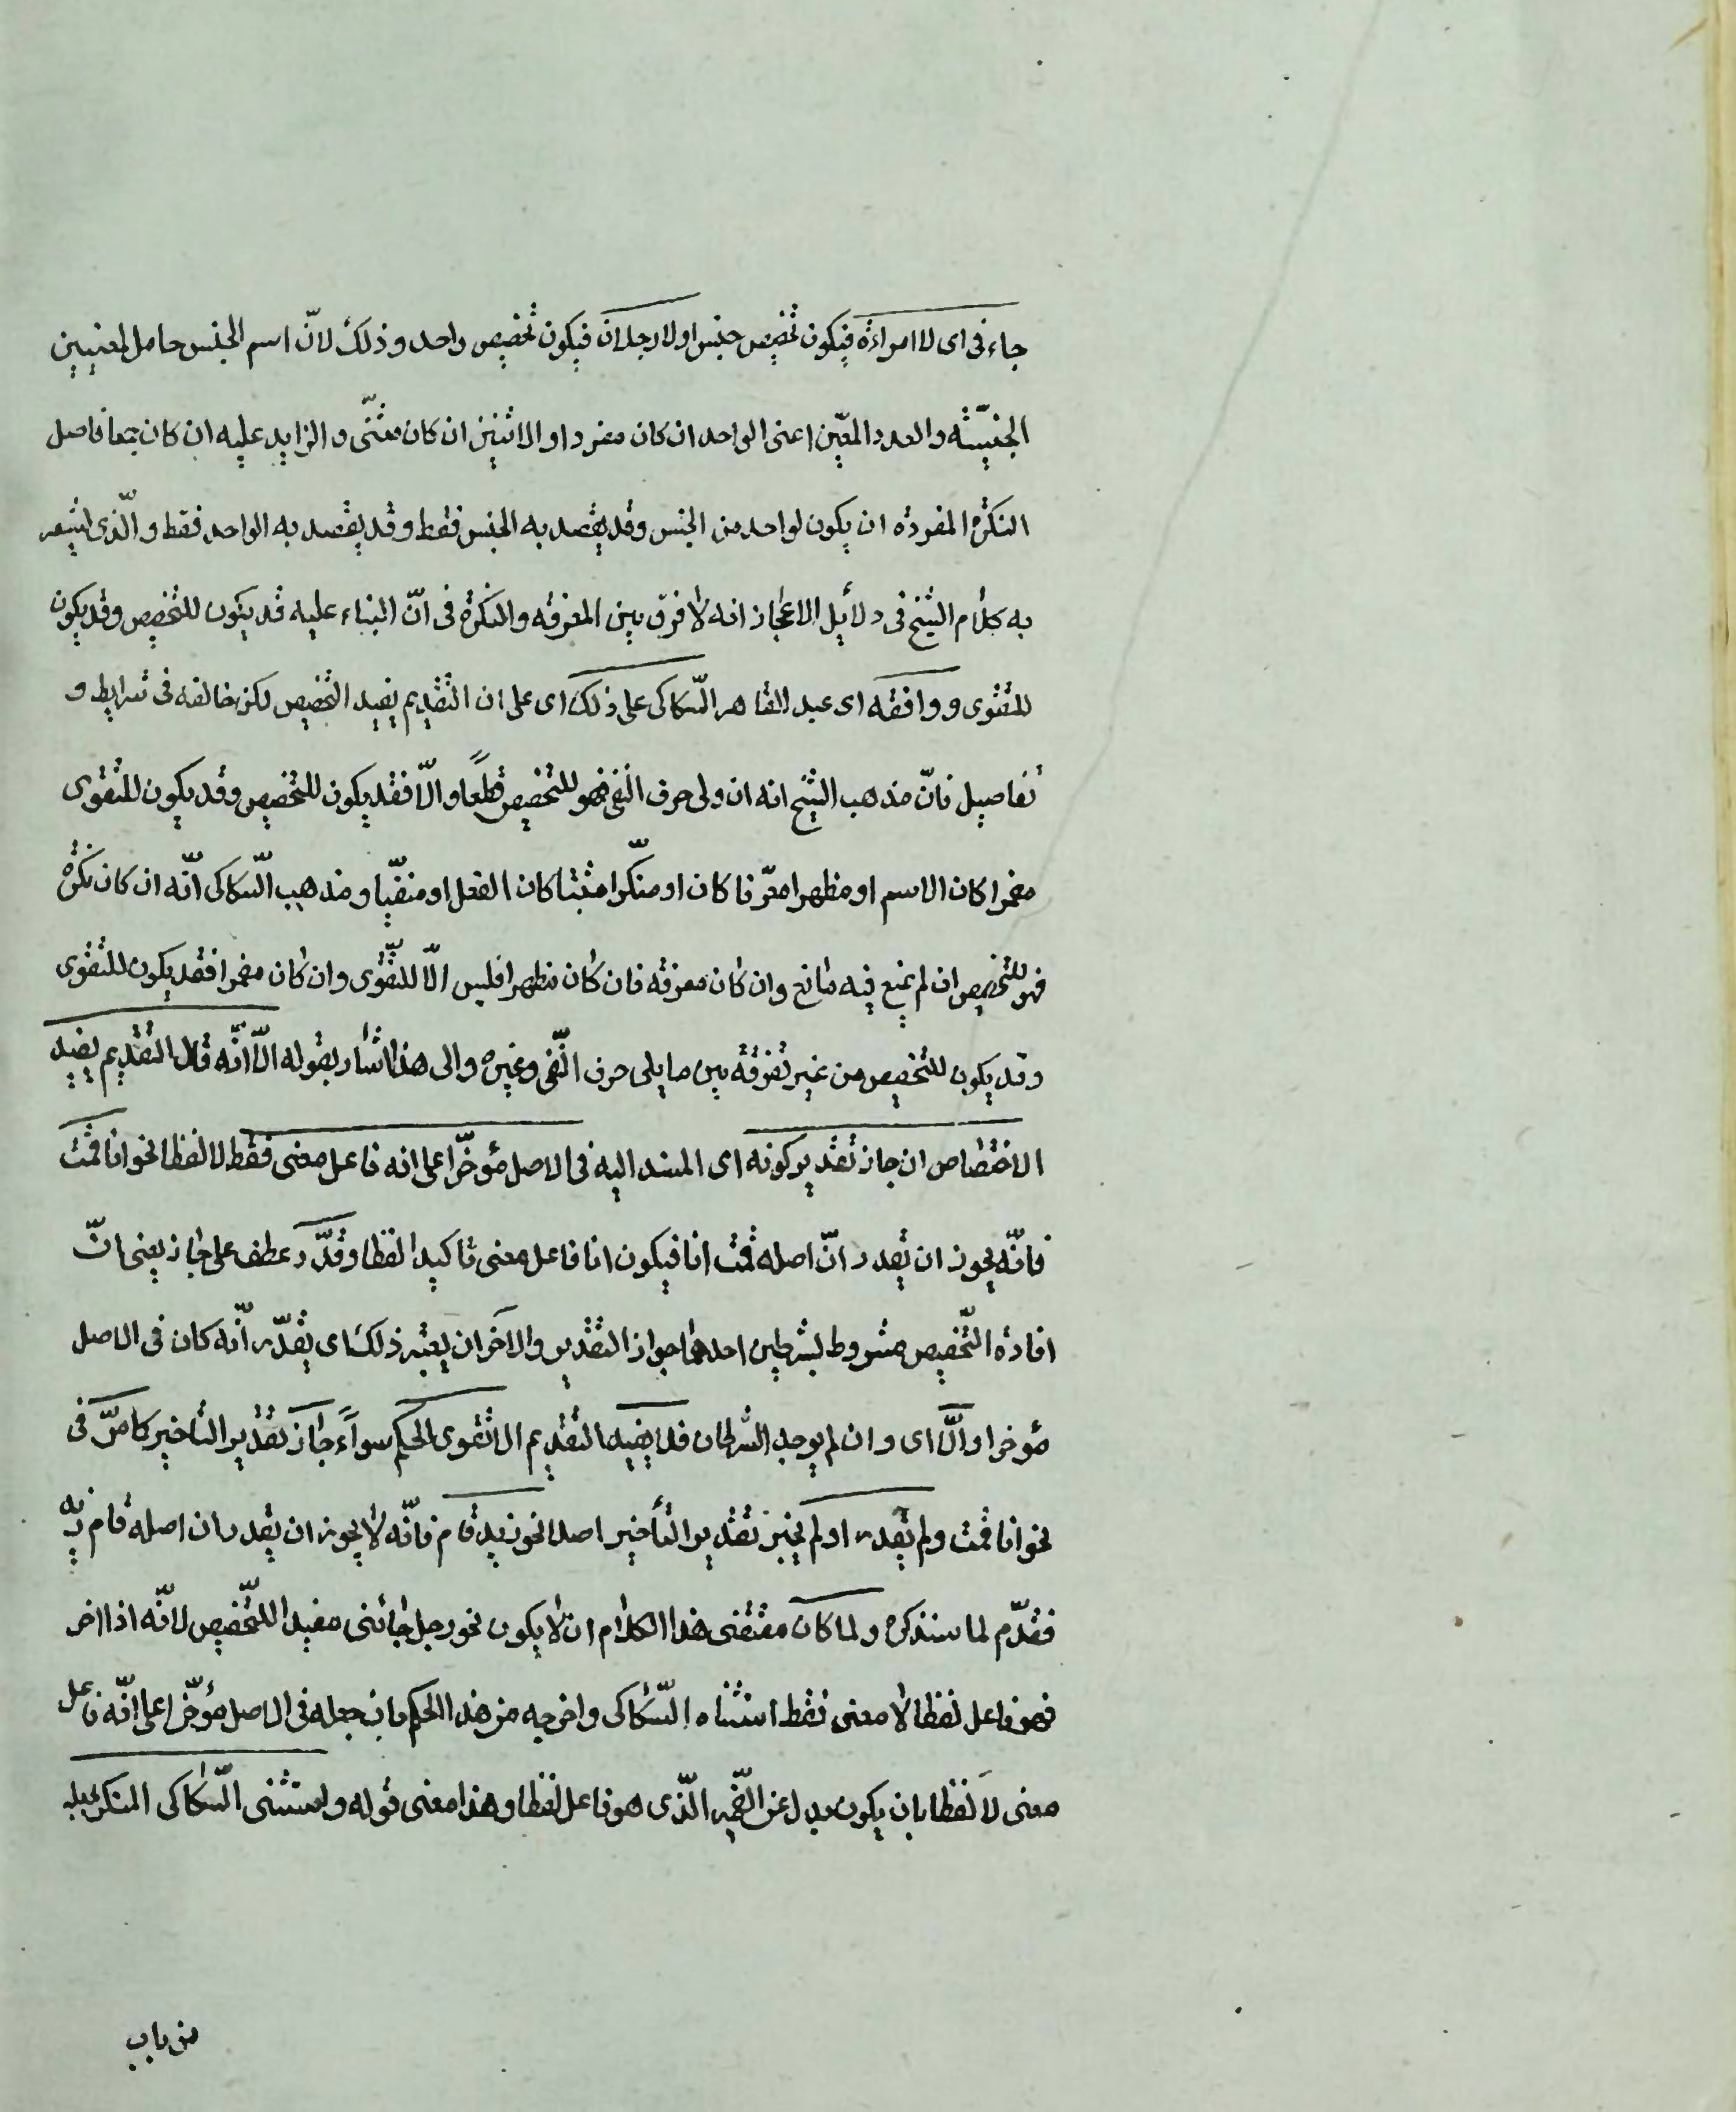 جاءنى اى لا امراءة فيكون تخصيص جنس او لا رجلان فيكون تخصيص واحد وذلك لانّ اسم الجنس حامل لمعنيين
الجنسيّة والعدد المعيّن اعنى الواحد ان كان مفردا او الاثنين ان كان مثنّى و الزايد عليه ان كان جمعا فاصل
النكرة المفردة ان يكون لواحد من الجنس وقد يقصد به الجنس فقط وقد يقصد به الواحد فقط والّذى يشعر
به كلام الشيخ فى دلائل الاعجاز انه لا فرق بين المعرفة والنكرة فى انّ البناء عليه قد يكون للتخصيص وقد يكون
للتقوى ووافقه اى عبد القاهر السّكاكى على ذلك اى على ان التقديم يفيد التخصيص لكن خالفه فى شرايط و
تفاصيل فانّ مذهب الشيخ انه ان ولى حرف النفى فهو للتخصيص قطعًا والّا فقد يكون للتخصيص وقد يكون للتقوى
مضمرا كان الاسم او مظهرا معرّفا كان او منكّرا مثبتا كان الفعل او منفيّا ومذهب السّكاكى انّه ان كان نكرة
فهو للتخصيص ان لم يمنع فيه مانع وان كان معرفة فان كان مظهرا فليس الّا للتّقوى وان كان مضمرا فقد يكون للتقوى
وقد يكون للتخصيص من غير تفرقة بين ما يلى حرف النّفى وغيره والى هذا اشار بقوله الّا انّه قال التقديم يفيد
الاختصاص ان جاز تقدير كونه اى المسند اليه فى الاصل مؤخّرا على انه فاعل معنى فقط لا لفظا نحو انا قمت
فانّه يجوز ان يقدر انّ اصله قمت انا فيكون انا فاعل معنى تاكيدا لفظا وقدّر عطف على جاز يعنى انّ
افادة التّخصيص مشروط بشرطين احدهما جواز التقدير والاخر ان يعتبر ذلك اى يقدّر انّه كان فى الاصل
مؤخرا والّا اى وان لم يوجد الشرطان فلا يفيد التقديم الا تقوى الحكم سواءً جاز تقدير التاخير كما مرّ فى
نحو انا قمت ولم يقدر او لم يجز تقدير التأخير اصلا نحو زيد قام فانّه لا يجوز ان يقدر ان اصله قام زيد
فقدّم لما سنذكره ولما كان مقتضى هذا الكلام ان لا يكون نحو رجل جائنى مفيدا للتّخصيص لانّه اذا اخر
فهو فاعل لفظا لا معنى فقط استثناه السّكاكى واخرجه من هذا الحكم بان جعله فى الاصل مؤخّرا على انّه فاعل
معنى لا لفظا بان يكون بدلا عن الضّمير الّذى هو فاعل لفظا وهذا معنى قوله واستثنى السّكاكى المنكر بجعله
من باب